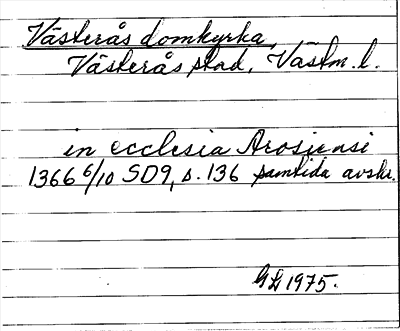 Västerås domkyrka,
Västerås stad, Västm. l.
in ecclesia Arosiensi
1366 6/10 SD9, s. 136 samtida avskr.
GL 1975.